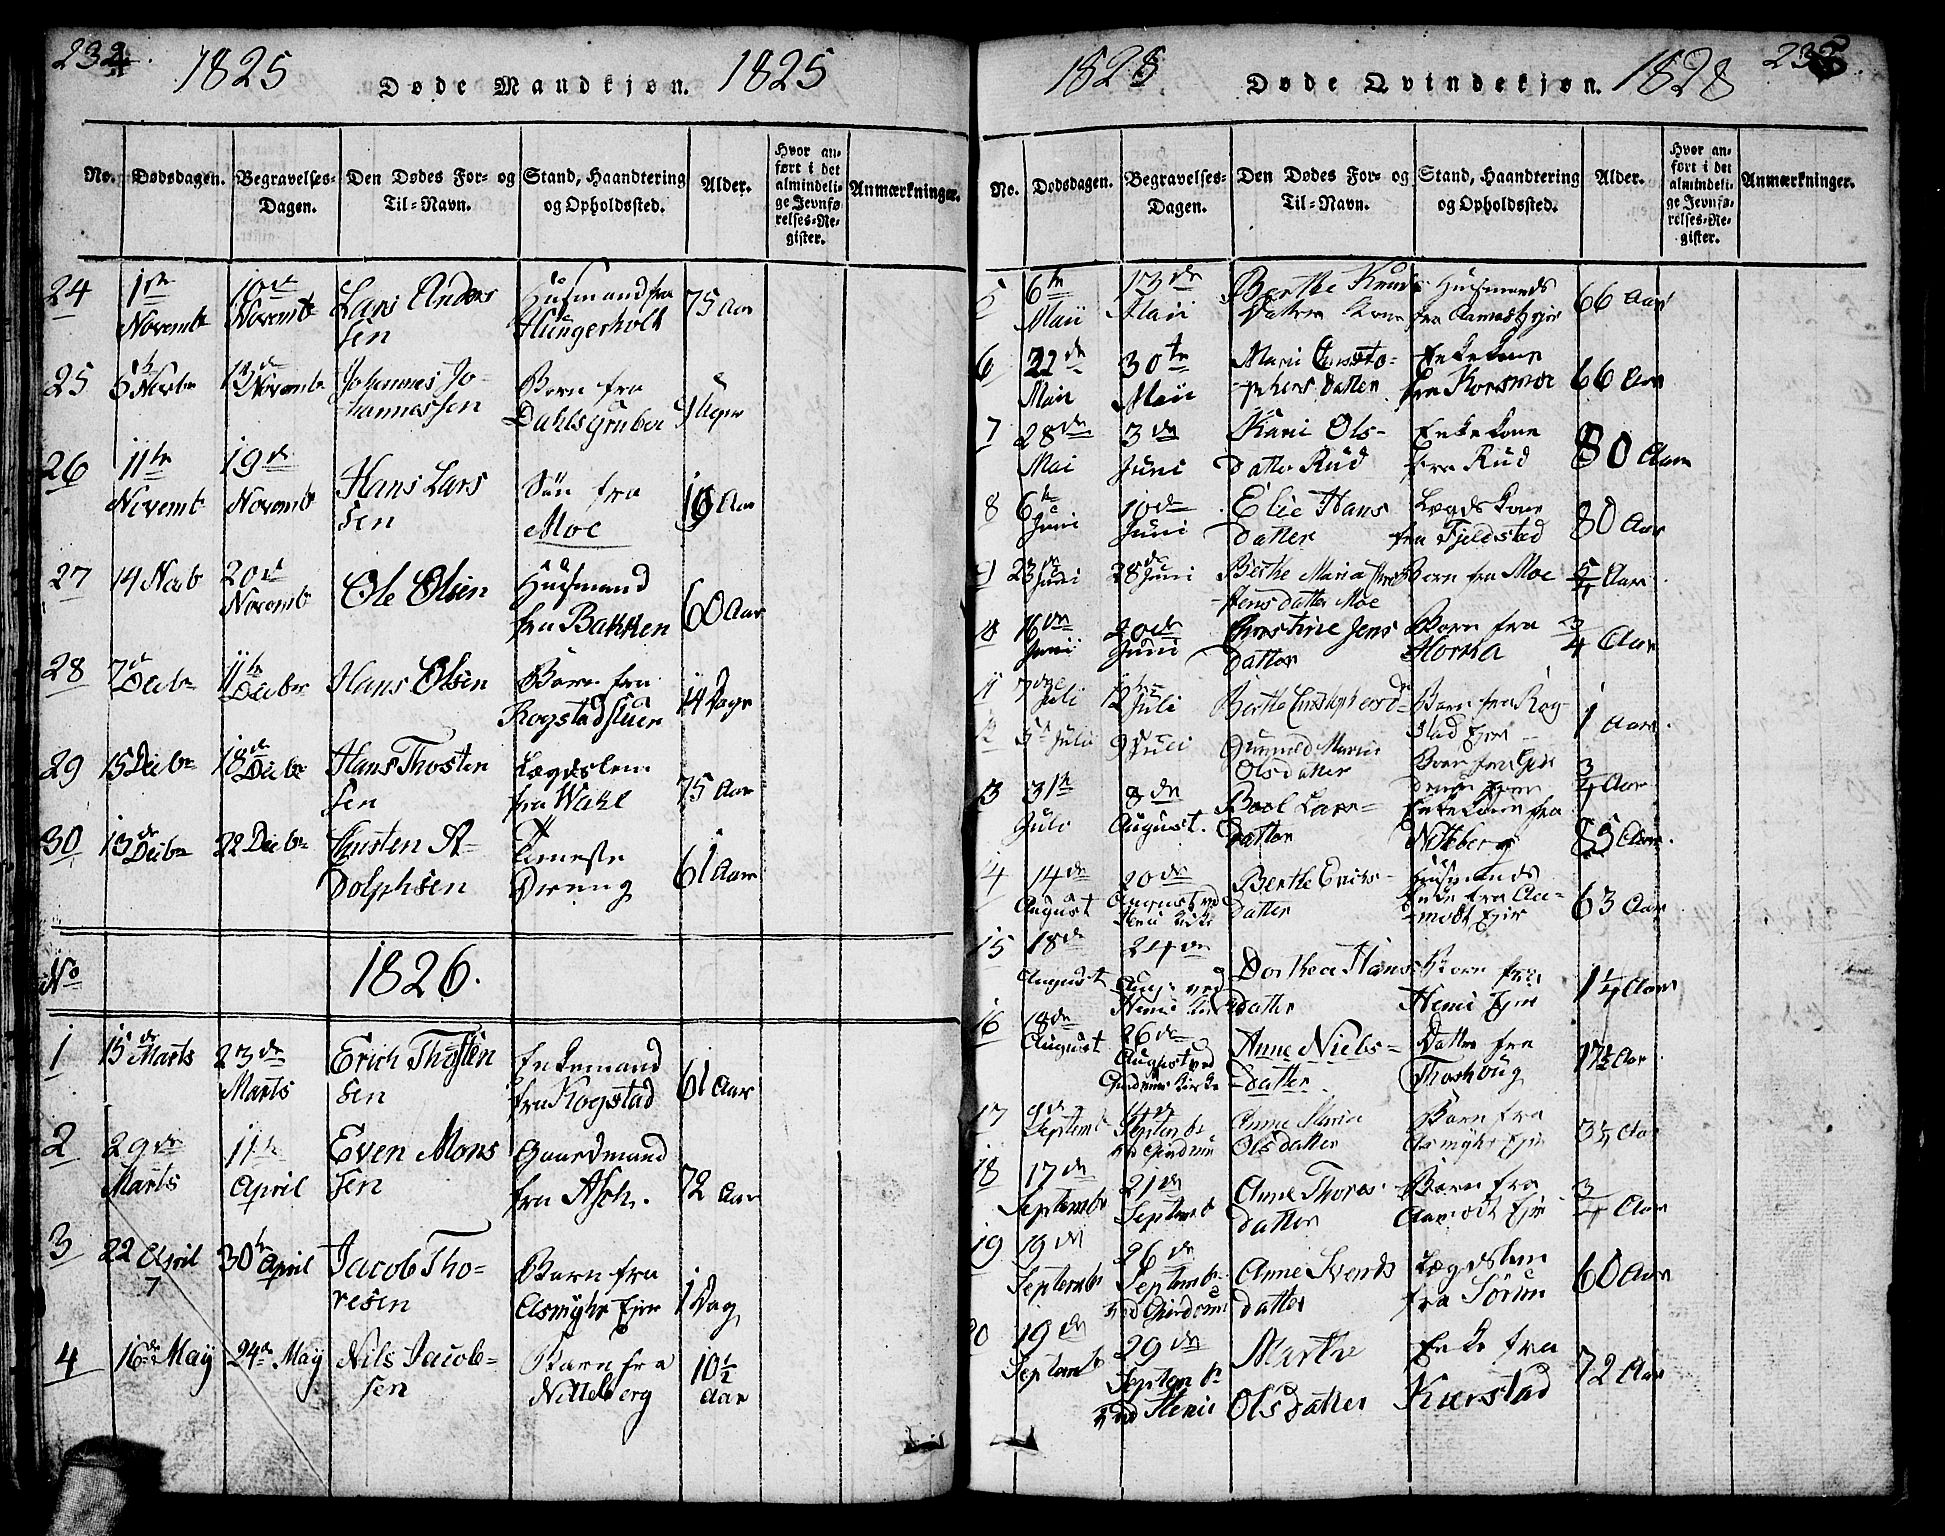 232.
1825
Døde Mandkjøn.
1825
No. Dødsdagen. Begravelses-Dagen. Den Dødes For- og Til-Navn. Stand, Haandtering og Opholdssted. Alder. Hvor anført i det almindelige Jevnførelses-Register. Anmærkninger.
24 1ste Novembr 10de Novembr Lars Andersen Huusmand fra Hungerholt 75 Aar
25 6te Novbr 13de Novembr Johannes Johannessen Barn fra Dahlsgruben 9 Uger
26 11te Novemb 19de Novemb Hans Larssen Søn fra Moe 16 Aar
27 14 Novb 20de Novemb Ole Olsen Huusmand fra Bakken 60 Aar
28 7de Decbr 11te Decbr Hans Olsen Barn fra Rogstadstuen 14 Dage
29 15 Decbr 18de Decbr Hans Thostensen Lægdslem fra Wahl 75 Aar
30 13de Decbr 22 Decbr Thosten Adolphsen Tieneste Dreng 61 Aar
No
1826.
1 15de Marts 23de Marts Erich Thostensen Enkemand fra Rogstad 61 Aar
2 29de Marts 11te April Even Monssen Gaardmand fra Asch. 72 Aar
3 22 April 30te April Jacob Thoresen Barn fra Asmyhr Ejer 1 Dag
4 16de May 24de May Nils Jacobsen Barn fra Nitteberg 10½ Aar
1828
Døde Qvindekjøn.
1828
No. Dødsdagen. Begravelses-Dagen. Den Dødes For- og Til-Navn. Stand, Haandtering og Opholdssted. Alder. Hvor anført i det almindelige Jevnførelses-Register. Anmærkninger.
5 6te Maii 13de Maii Berthe Knuds Datter Huusmands Kone fra 66 Aar
6 22de Maii 30te Maii Marie Christophers Datter Enkekone fra Korsmoe 66 Aar
7 28de Mai 3de Juni Kari Olsdatter Rud Enkekone fra Rud 80 Aar
8 6te Juni 10de Juni Elie Hansdatter Lægdskone fra Fjeldstad 80 Aar
9 23de Juni 28de Juni Berthe Maria datter Moe Barn fra Moe 5/4 Aar
10 16de Junii 20de Juni Christine Jensdatter Barn fra Horka 3/4 Aar
11 7de Juli 12te Juli Berthe Christophersd. Barn fra Rogstad Ejer 1 Aar
12 5te Juli 9de Juli Gunnild Marie Olsdatter Barn fra Ejer 3/4 Aar
13 31te Juli 8de August. Boel Larsdatter Enkekone fra Nitteberg 85 Aar
14 14de August 20de August ved Hemi Kirke Berthe Erichsdatter Huusmands Enke fra Aamodt Ejer 63 Aar
15 18de August 24de Aug: ved Hemi Kirke Dorthea Hansdatter Barn fra Hemi Ejer 1¼ Aar
16 18de August 26de August ved Gierdrum Kirke Anne Nielsdatter Datter fra Thoshoug 17½ Aar
17 9de Septemb 14de Septembr ved Gierdrum Anne Maria Olsdatter Barn fra Asmyhr Ejer 3¼ Aar
18 17de Septembr 21de Septemb Anne Thoresdatter Barn fra Aamodt Ejer 3/4 Aar
19 19de Septembr 26de Septembr ved Gierdrum Anne Svendsdatter Lægdslem fra Sørum 60 Aar
20 19de Septemb 29de Septembr ved Hemie Marthe Olsdatter Enke fra Kierstad 72 Aar